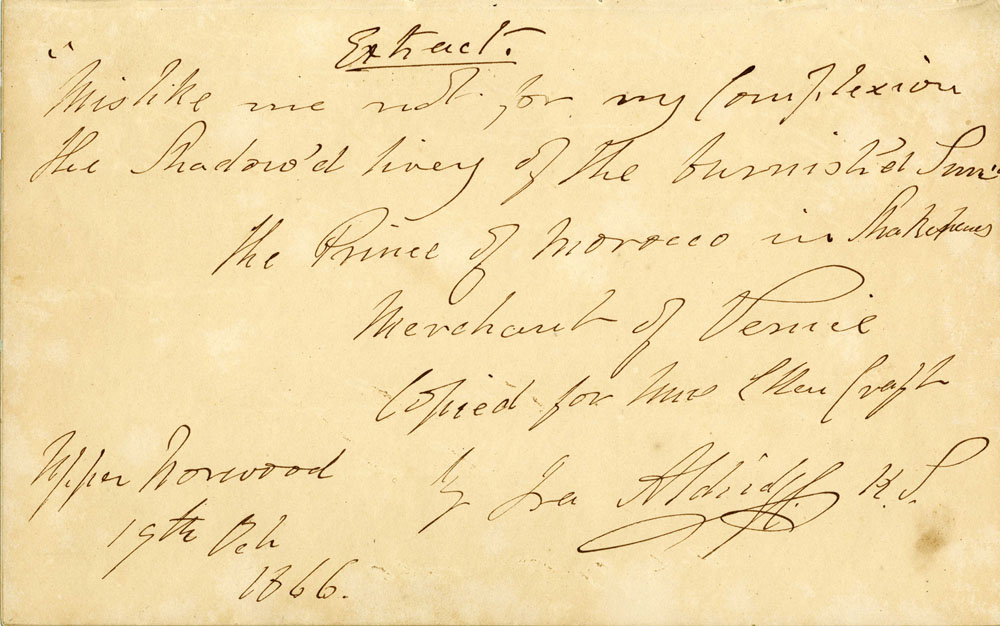 Extract.
"Mislike me not for my Complexion
the Shadow'd livery of the burnish'd Sun"
the Prince of Morocco in Shakespeares
Merchant of Venice
Copied for Mrs Ellen Craft
by Ira Aldridge. K. S.
Upper Norwood
19th Oct
1866.